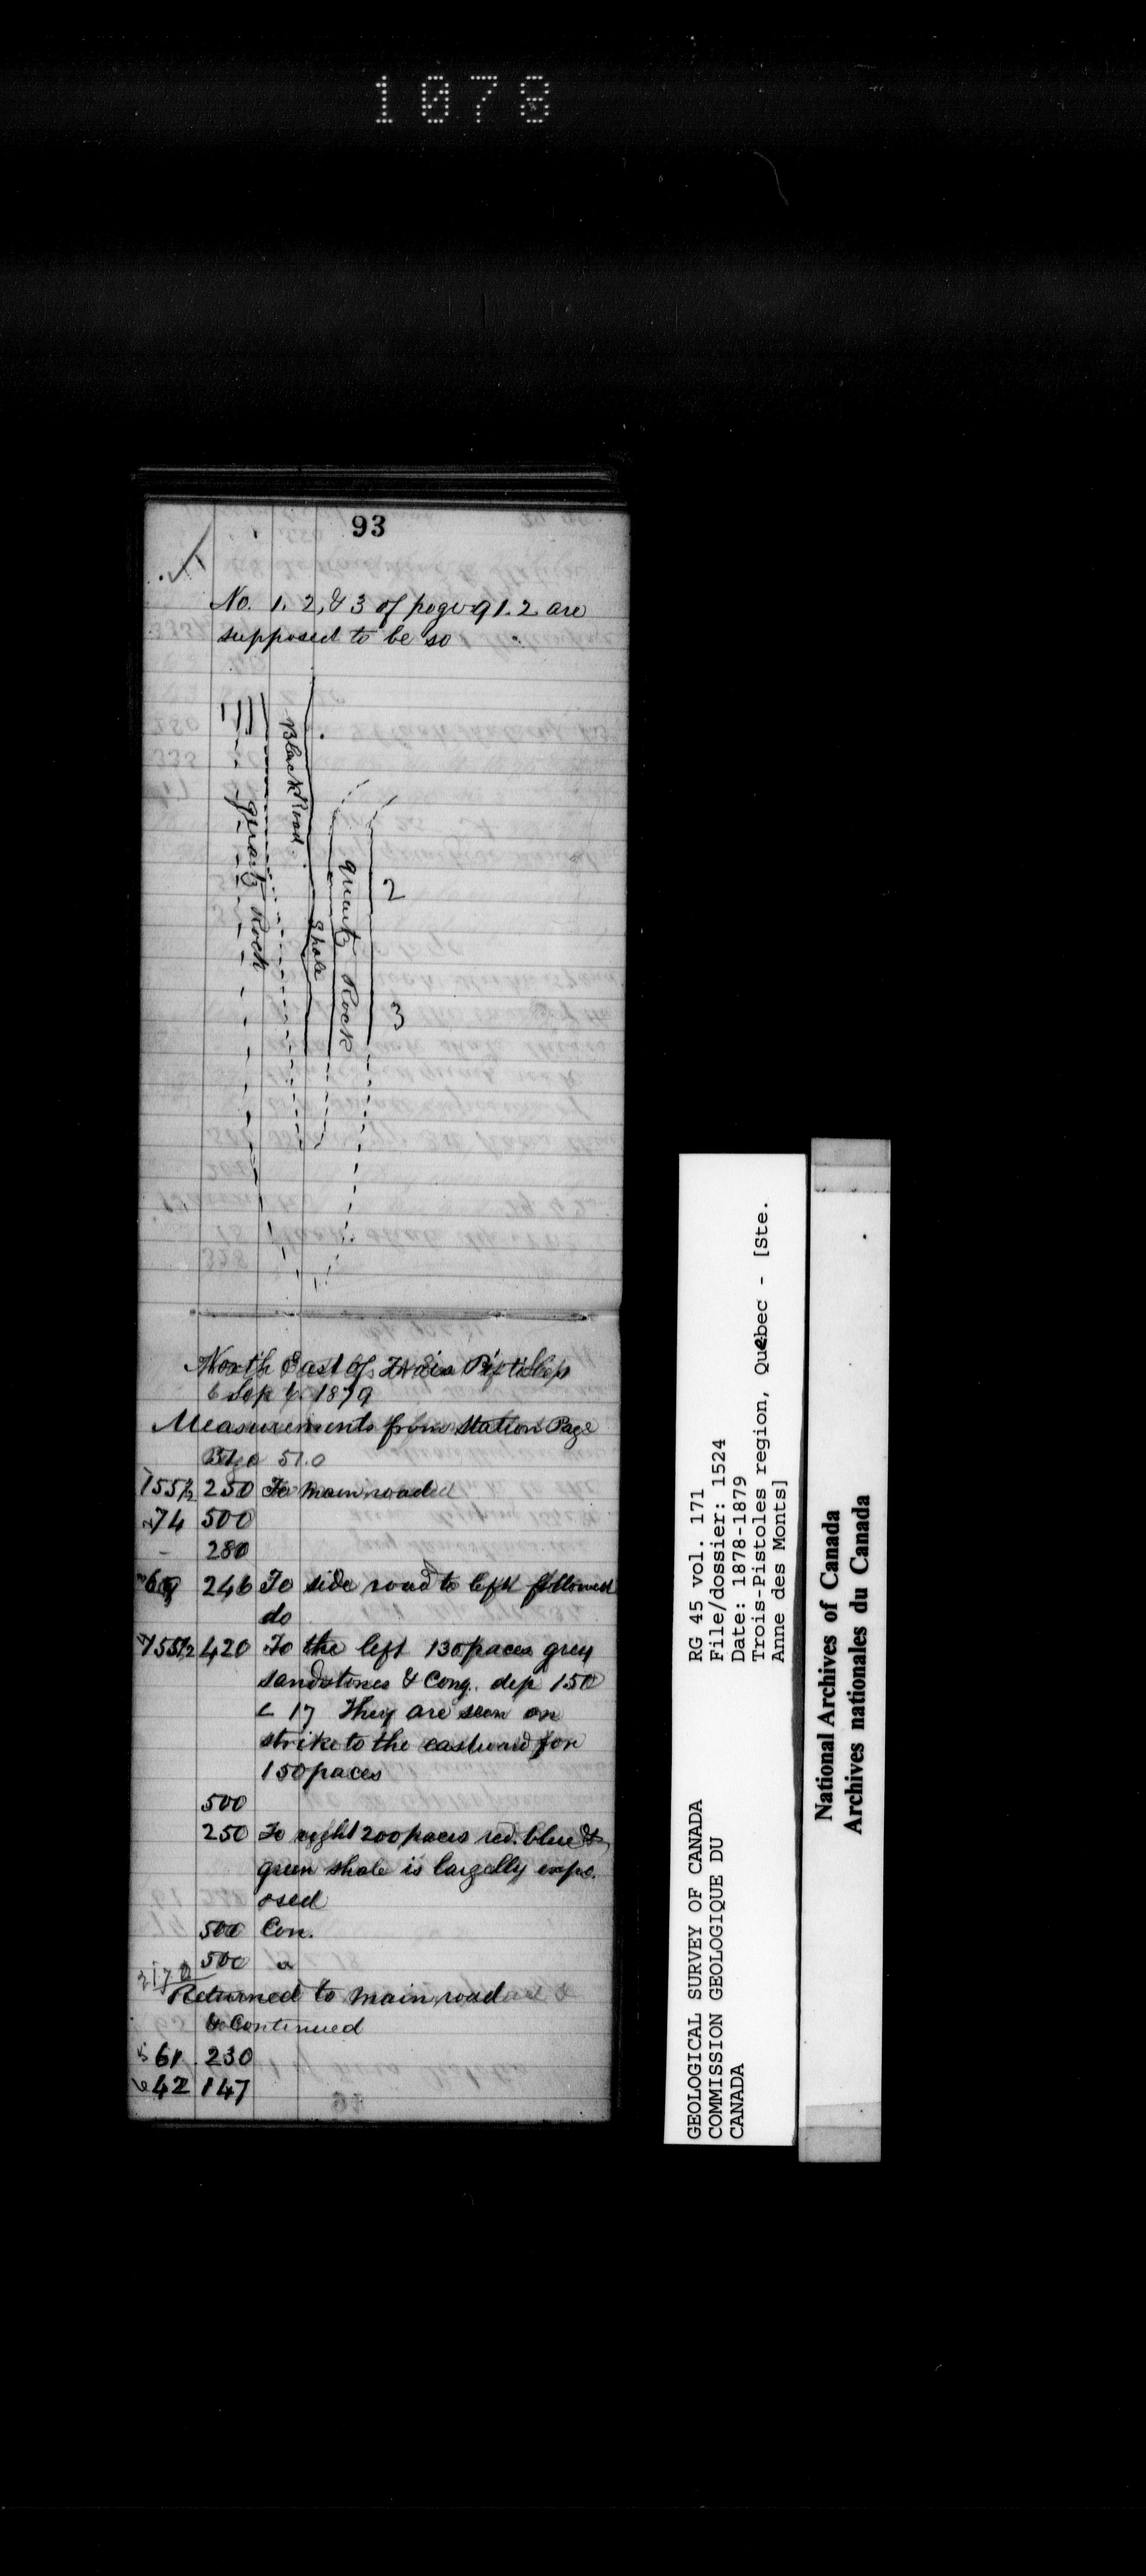 1078
93
No. 1. 2, & 3 of page 91.2 are
supposed to be so
Black Road.
quartz Rock
Shale
quartz Rock
2
3
North East of Trois Pistoles
6 Sep t. 1879
Measurements from Station Page
51.0
155½ 250 To main road
74 500
280
69 246 To side road to left followed
do
155½ 420 To the left 130 paces grey
sandstones & Cong. dip 150
∠ 17 They are seen on
strike to the eastward for
150 paces
500
250 To right 200 paces red. blue &
green shale is largelly expo.
osed
500 Con.
500
2170
Returned to main road
& Continued
61 230
42 147
GEOLOGICAL SURVEY OF CANADA
COMMISSION GEOLOGIQUE DU
CANADA
RG 45 vol. 171
File/dossier: 1524
Date: 1878-1879
Trois-Pistoles region, Québec - [Ste.
Anne des Monts]
National Archives of Canada
Archives nationales du Canada